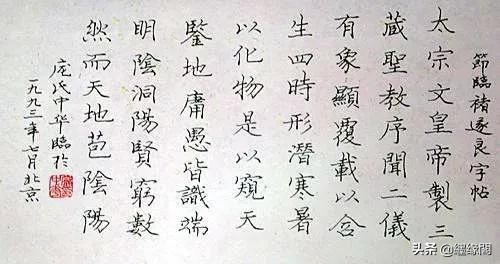 節臨褚遂良字帖
太宗文皇帝製三
藏聖教序聞二儀
有象顯覆載以含
生四時形潛寒暑
以化物是以窺天
鑒地庸愚皆識端
明陰洞陽賢窮數
然而天地苞陰陽
庞氏中华臨於
一九九三年七月北京
头条